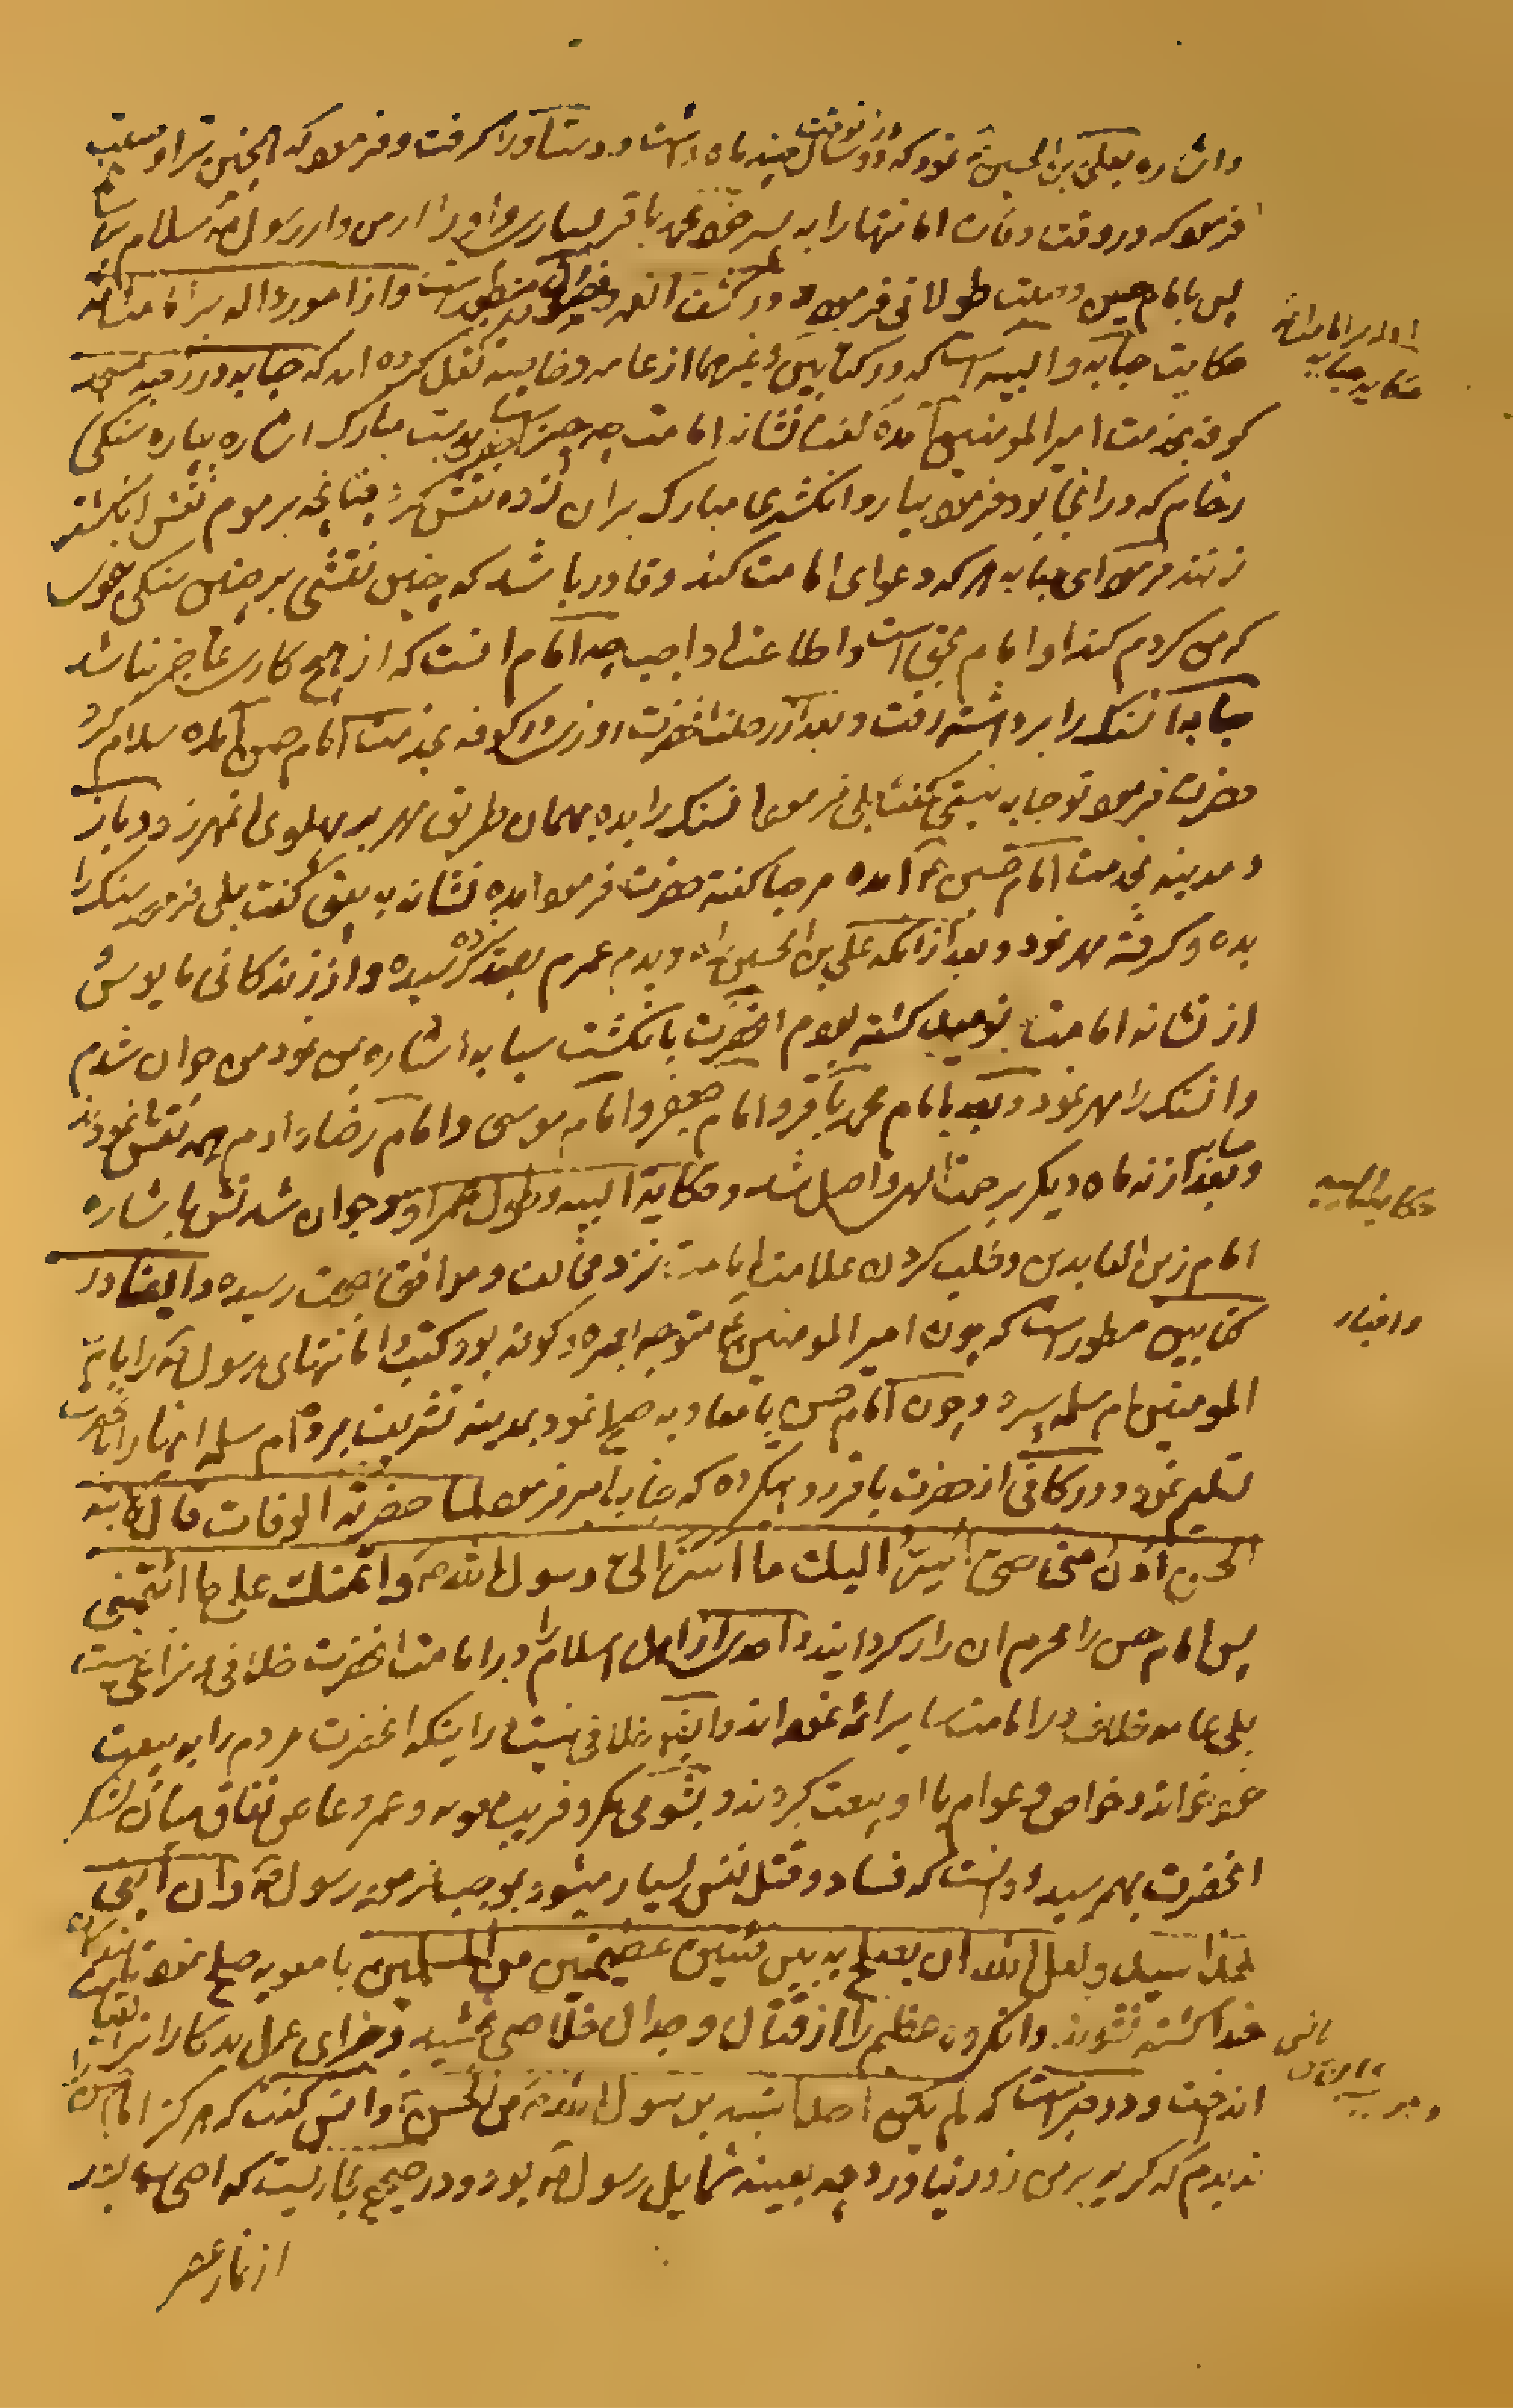 واشاره بعلی بن الحسین نمود که در آنوقت دو سال و چند ماه داشت و دست او را گرفت و فرمود که همچنین ترا وصیت
فرمود که در وقت وفات امانتها را به پسر خود محمد باقر بسپاری و او را از من و از رسول سلام برسانی
پس بامام حسین وصیت طولانی فرمود و در کشف الغمه و مسطور است و از امور داله بر امامت ائمه
حکایت حبابه والبیه است که در کتابین و غیرهما از عامه و خاصه نقل کرده اند که حبابه در رحبه مسجد
کوفه بخدمت امیر المومنین آمده گفت نشانه امامت چه چیز است بدست مبارک اشاره بپاره سنگی
رخام که در انجا بود فرمود بیار و انگشتری مبارک بر ان زده نقش کرد چنانچه بر موم نقش انگشتر
زنند فرمود ای حبابه هر که دعوای امامت کند و قادر باشد که چنین نقشی بر چنین سنگی چون
که من کردم کند او امام بحق است و اطاعتش واجب چه امام انست که از هیچ کاری عاجز نباشد
حبابه انسنگ را برداشته رفت و بعد از رحلت انحضرت روزی در کوفه بخدمت امام حسن آمده سلام کرد
حضرت فرمود تو حبابه نیستی گفت بلی فرمود انسنگ را بده بهمان طریق مهر بر پهلوی انمهر زد و باز
در مدینه بخدمت امام حسین آمده مرحبا گفته حضرت فرمود امده نشانه به بینی گفت بلی فرمود سنگ را
بده و گرفته مهر نمود و بعد از انکه علی بن الحسین را دیدم عمرم بصد رسیده و از زندگانی مایوس
از نشانه امامت نومید گشته بودم انحضرت بانگشت سبابه اشاره بمن نمود من جوان شدم
وانسنگ را مهر نمود و بعد بامام محمد باقر و امام جعفر و امام موسی و امام رضا دادم همه نقش نمودند
و حبابه بعد از نه ماه دیگر برحمت الهی واصل شد و حکایة البیه و طول عمر او و جوان شدنش باشاره
امام زین العابدین و طلب کردن علامت امامت نزد مخالف و موافق بصحت رسیده و ایضا در
کتابین مسطور است که چون امیر المومنین متوجه بصره و کوفه بود کتب و امانتهای رسول را بام
المومنین ام سلمه سپرد و چون امام حسن با معاویه صلح نمود بمدینه تشریف برد ام سلمه انها را بانحضرت
تسلیم نمود و در کافی از حضرت باقر روایت کرده که جناب امیر فرمود لما حضرته الوفات قال لابنه
الحسن ادن منی حتی اسر الیك ما اسر الی رسول الله و ائتمنك علی ما ائتمنی
پس امام حسن را محرم ان راز گردانید و احدی از اهل اسلام را در امامت انحضرت خلافی و نزاعی نیست
بلی عامه خلاف در امامت سایر ائمه نموده اند و ایضا خلافی نیست در اینکه انحضرت مردم را به بیعت
خود خواند و خواص و عوام با او بیعت کردند و بشومی مکر و فریب معویه و عمرو عاص نفاق میان لشکر
انحضرت بهم رسید و دانست که فساد و قتل نفس بسیار میشود بموجب فرموده رسول و ان ابنی
هذا سید و لعل الله ان یصلح به بین فئتین عظیمتین من المسلمین با معویه صلح نمود تا بندگان
خدا کشته نشوند وانگروه عظیم را از قتال و جدال خلاصی بخشید و جزای عمل بدکاران را بقیامت
انداخت و در خبر است که لم یکن احد اشبه برسول الله من الحسن و انس گفت که هرگز امام حسن را
ندیدم که گریه بر من زور نیاورد چه بعینه شمایل رسول بود و در صحیح بخاریست که
از نماز عصر
ادله بر امامت ائمه
حکایه حبابه
حکایه البیه
واخبار